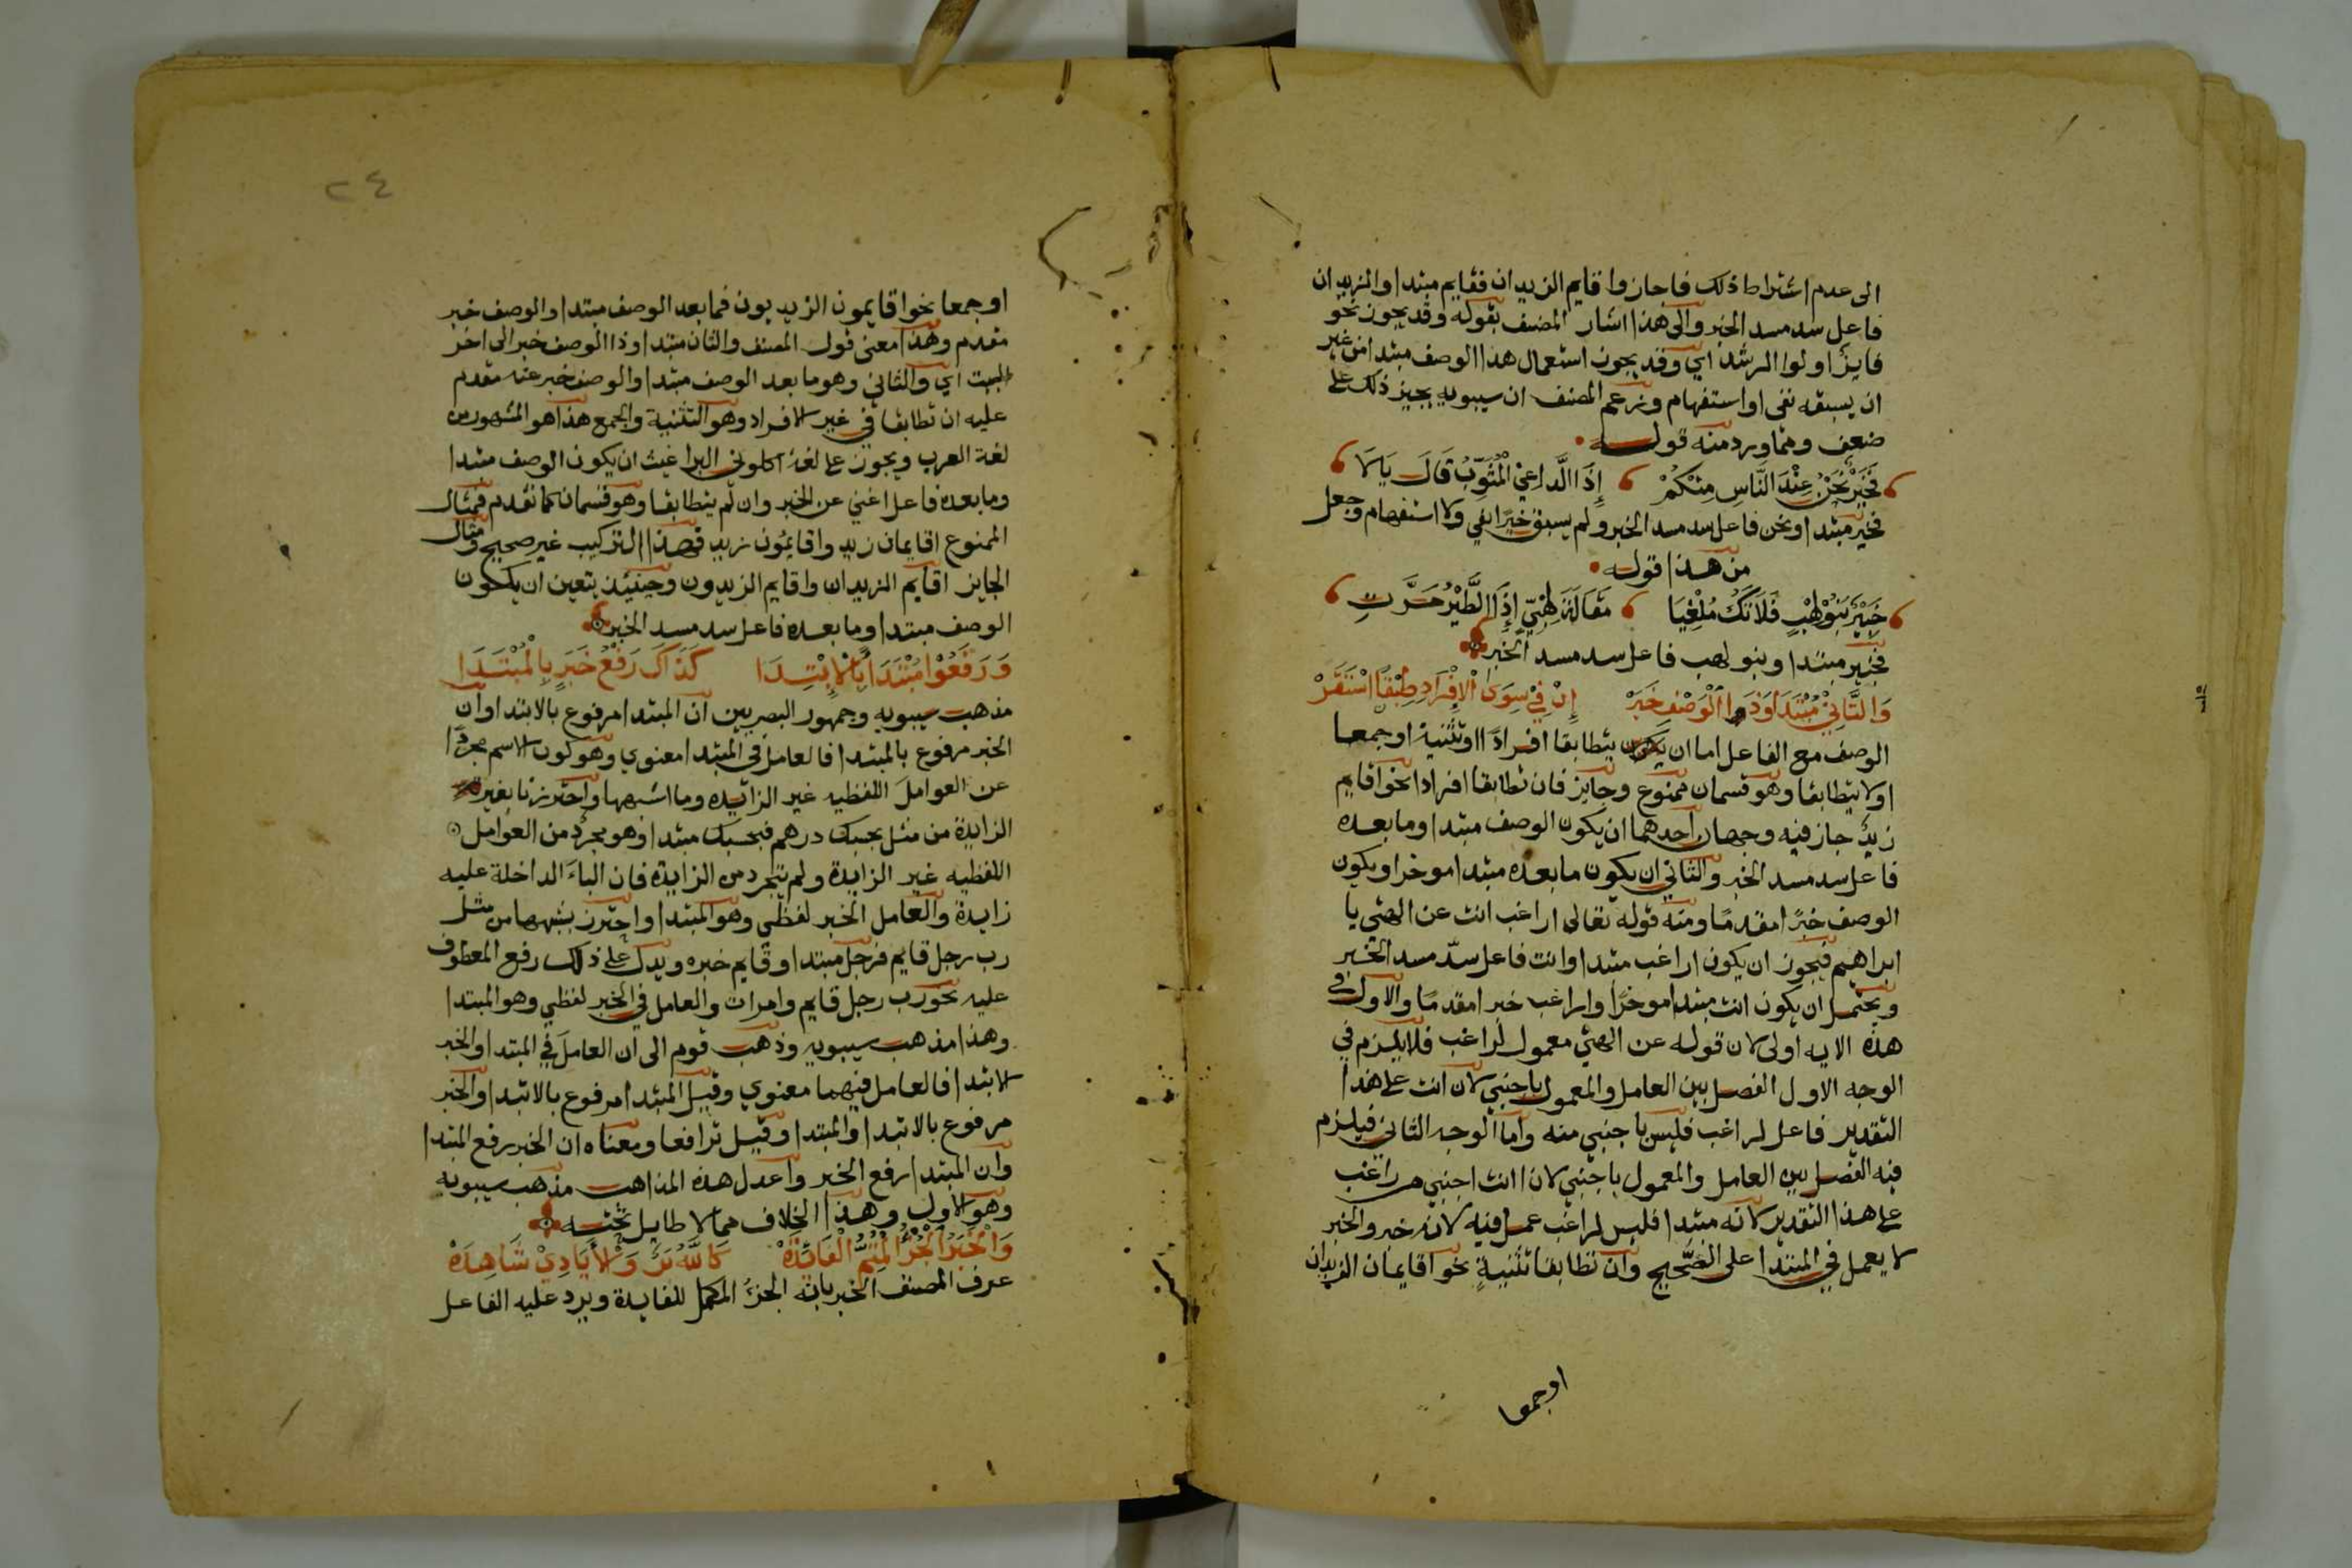 الى عدم اشتراط ذلك فاجازوا قايم الزيدان فقايم مبتدا والزيدان
فاعل سد مسد الخبر والى هذا اشار المصنف بقوله وقد يجوز نحو
فايز اولوا الرشد اي وقد يجوز استعمال هذا الوصف مبتدا من غير
ان يسبقه نفي او استفهام وزعم المصنف ان سيبويه يجيز ذلك على
ضعف ومما ورد منه قوله
فَخَيْرٌ نَحْنُ عِنْدَ النَّاسِ مِنْكُمْ إِذَا الدَّاعِيْ الْمُثَوِّبُ قَالَ يَالَا
فخير مبتدا ونحن فاعل سد مسد الخبر ولم يسبق خيرا نفي ولا استفهام وجعل
من هذا قوله
خَبِيْرٌ بَنُوْ لِهْبٍ فَلَا تَكُ مُلْغِيَا مَقَالَةَ لِهْبِيٍّ إِذَا الطَّيْرُ مَرَّتِ
فخبير مبتدا وبنو لهب فاعل سد مسد الخبر
وَالثَّانِيْ مُبْتَدَا وَذَا الْوَصْفُ خَبَرْ إِنْ فِيْ سِوَى الْإِفْرَادِ طِبْقًا اسْتَقَرّْ
الوصف مع الفاعل اما ان يكون يتطابقا افرادا او تثنية او جمعا
او لا يتطابقا وهو قسمان ممنوع وجايز فان تطابقا افرادا نحو اقايم
زيدٌ جاز فيه وجهان احدهما ان يكون الوصف مبتدا وما بعده
فاعل سد مسد الخبر والثاني ان يكون ما بعده مبتدا موخرا ويكون
الوصف خبرًا مقدمًا ومنه قوله تعالى اراغب انت عن الهتي يا
ابراهيم فيجوز ان يكون اراغب مبتدا وانت فاعل سدّ مسد الخبر
ويحتمل ان يكون انت مبتدا موخرًا واراغب خبرا مقدمًا والاول في
هذه الايه اولى لان قوله عن الهتي معمول لراغب فلا يلزم في
الوجه الاول الفصل بين العامل والمعمول باجنبي لان انت على هذا
التقدير فاعل لراغب فليس باجنبي منه واما الوجه الثاني فيلزم
فيه الفصل بين العامل والمعمول باجنبي لان انت اجنبي من راغب
على هذا التقدير لانه مبتدا فليس لراغب عمل فيه لانه خبر والخبر
لا يعمل في المبتدا على الصحيح وان تطابقا تثنيةٍ نحو اقايمان الزيدان
اوجمعا
٢٤
او جمعا نحوا قايمون الزيديون فما بعد الوصف مبتدا والوصف خبر
مقدم وهذا معنى قول المصنف والثان مبتدا وذا الوصف خبر الى اخر
البيت اي والثاني وهو ما بعد الوصف مبتدا والوصف خبر عنه مقدم
عليه ان تطابقا في غير الافراد وهو التثنية والجمع هذا هو المشهور من
لغة العرب ويجوز على لغة اكلوني البراغيث ان يكون الوصف مبتدا
وما بعده فاعل اغني عن الخبر وان لم يتطابقا وهو قسمان كما تقدم فمثال
الممنوع اقايمان زيد واقايمُون زيد فهذا التركيب غير صحيح ومثال
الجايز اقايم الزيدان واقايم الزيدون وحينئذ يتعين ان يكون
الوصف مبتدا وما بعده فاعل سد مسد الخبر
وَرَفَعُوْا مُبْتَدَأً بِالْإِبْتِدَا كَذَاكَ رَفْعُ خَبَرٍ بِالْمُبْتَدَا
مذهب سيبويه وجمهور البصريين ان المبتدا مرفوع بالابتدا وان
الخبر مرفوع بالمبتدا فالعامل في المبتدا معنوي وهو كون الاسم مجردًا
عن العوامل اللفظيه غير الزائيده وما اشبهها واحترزنا بغير
الزايدة من مثل بحسبك درهم فبحسبك مبتدا وهو مجرد من العوامل
اللفظيه غير الزايدة ولم تتجرد من الزايدة فان الباء الداخلة عليه
زايدة والعامل الخبر لفظي وهو المبتدا واحترز بشبهها من مثل
رب رجل قايم فرجل مبتدا وقايم خبره ويدل على ذلك رفع المعطوف
عليه نحو رب رجل قايم وامرات والعامل في الخبر لفظي وهو المبتدا
وهذا مذهب سيبويه وذهب قوم الى ان العامل في المبتدا والخبر
الابتدا فالعامل فيهما معنوي وقيل المبتدا مرفوع بالابتدا والخبر
مرفوع بالابتدا والمبتدا وقيل ترافعا ومعناه ان الخبر رفع المبتدا
وان المبتدا رفع الخبر واعدل هذه المذاهب مذهب سيبويه
وهو الاول وهذا الخلاف مما لا طايل تحته
وَالْخَبَرُ الْجُزْءُ الْمُتِمُّ الْفَائِدَهْ كَاللَّهُ بَرٌّ وَالْأَيَادِيْ شَاهِدَهْ
عرف المصنف الخبر بانه الجزءُ المكمل للفايدة ويرد عليه الفاعل